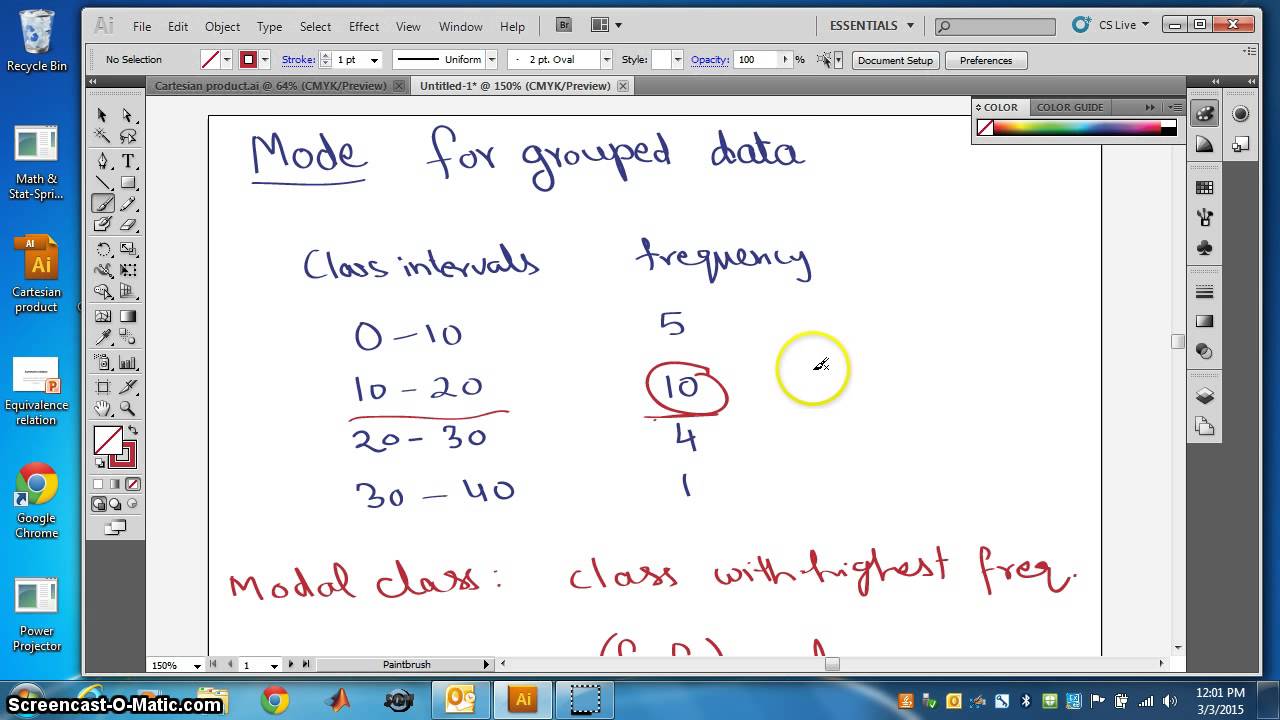 Recycle Bin
Math &
Stat-Spri...
Cartesian
product
Equivalence
relation
Google
Chrome
Power
Projector
Ai File Edit Object Type Select Effect View Window Help Br ESSENTIALS CS Live
No Selection Stroke: 1 pt Uniform 2 pt. Oval Style: Opacity: 100 % Document Setup Preferences
Cartesian product.ai @ 64% (CMYK/Preview) Untitled-1* @ 150% (CMYK/Preview)
COLOR COLOR GUIDE
Mode for grouped data
Class intervals frequency
0 - 10 5
10 - 20 10
20 - 30 4
30 - 40 1
Modal class: class with highest freq.
150% 1 Paintbrush
Screencast-O-Matic.com
Ai
12:01 PM
3/3/2015